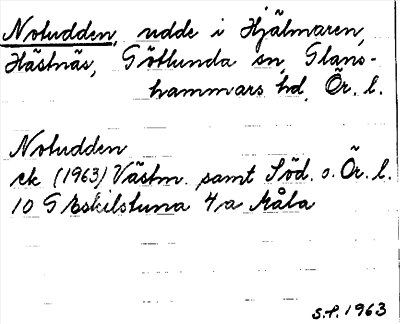 Notudden, udde i Hjälmaren,
Hästnäs, Götlunda sn, Glans-
hammars hd, Ör. l.
Notudden
ek (1963) Västm. samt Söd. o. Ör. l.
10 G Eskilstuna 4a Måla
S.F. 1963